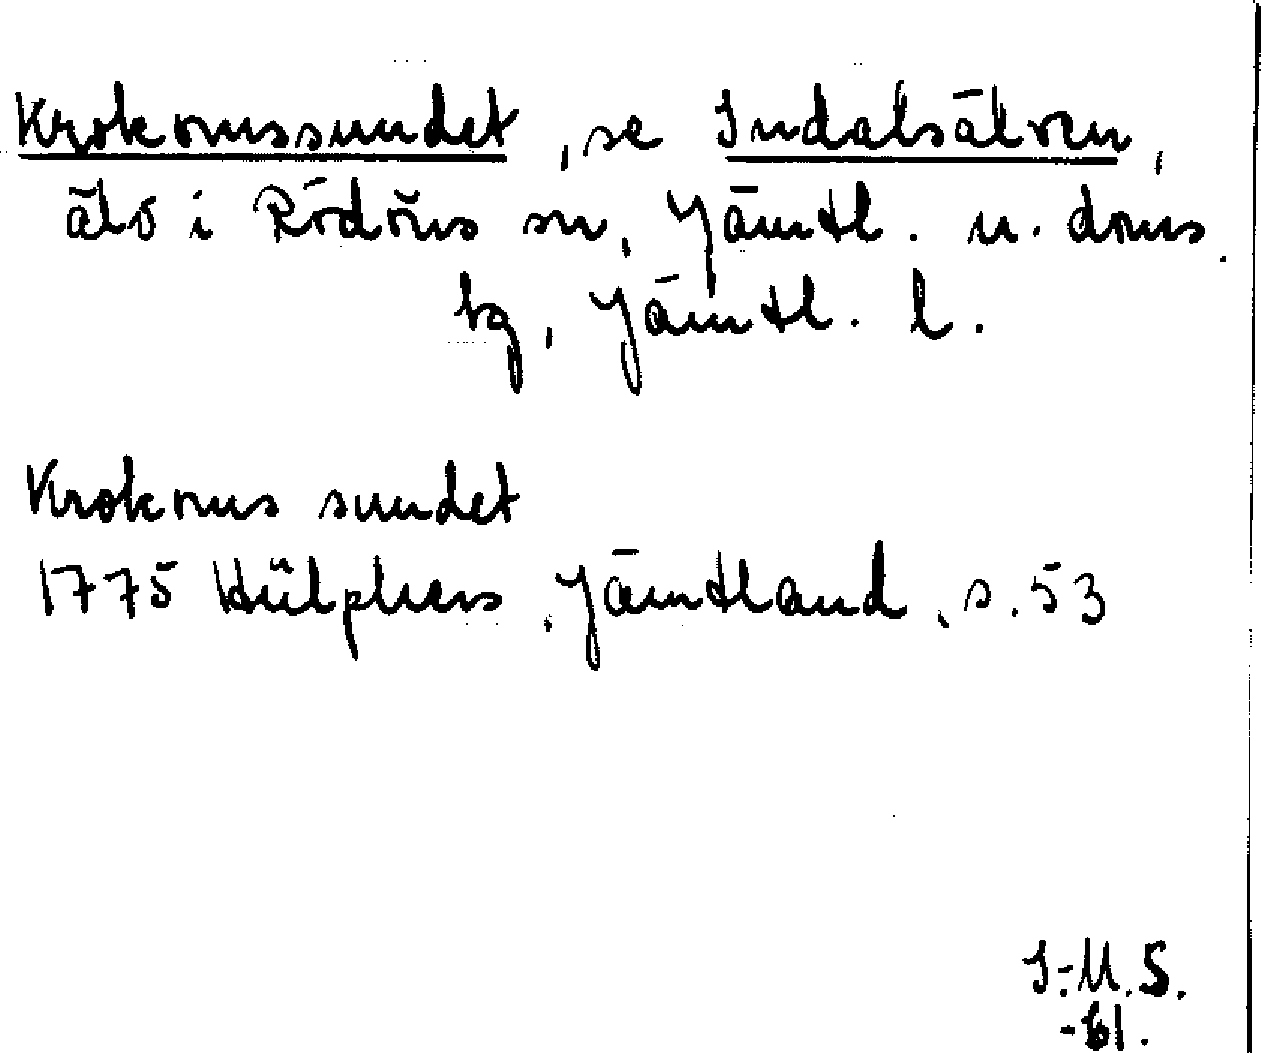 Krokomssundet, se Indalsälven,
älv i Rödöns sn, Jämtl. n. doms.
tg, Jämtl. l.
Krokoms sundet
1775 Hülphers, Jämtland, s. 53
I.-M.S.
-61.